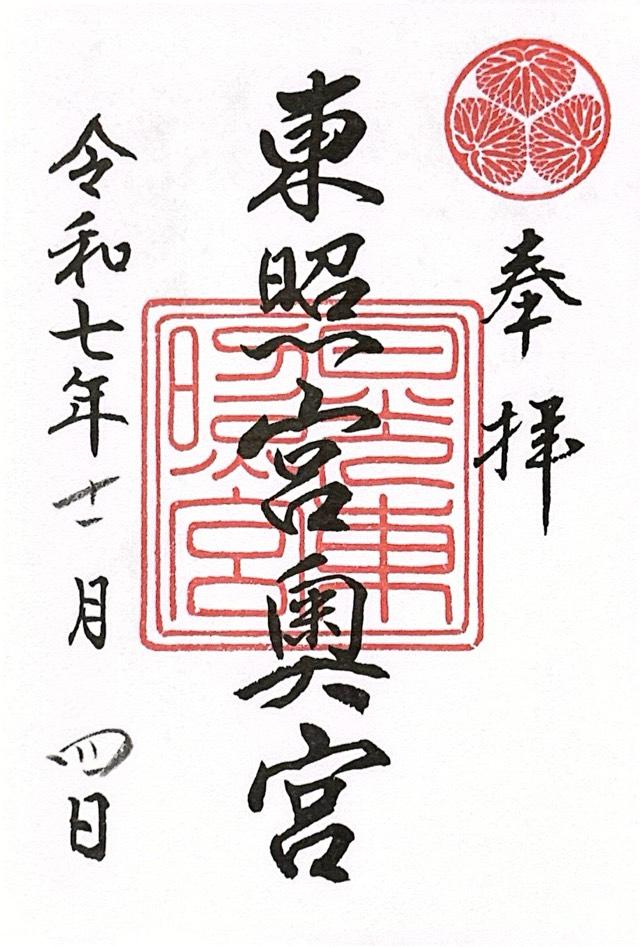 奉拝
東照宮奥宮
日光東
照宮
令和七年十一月四日